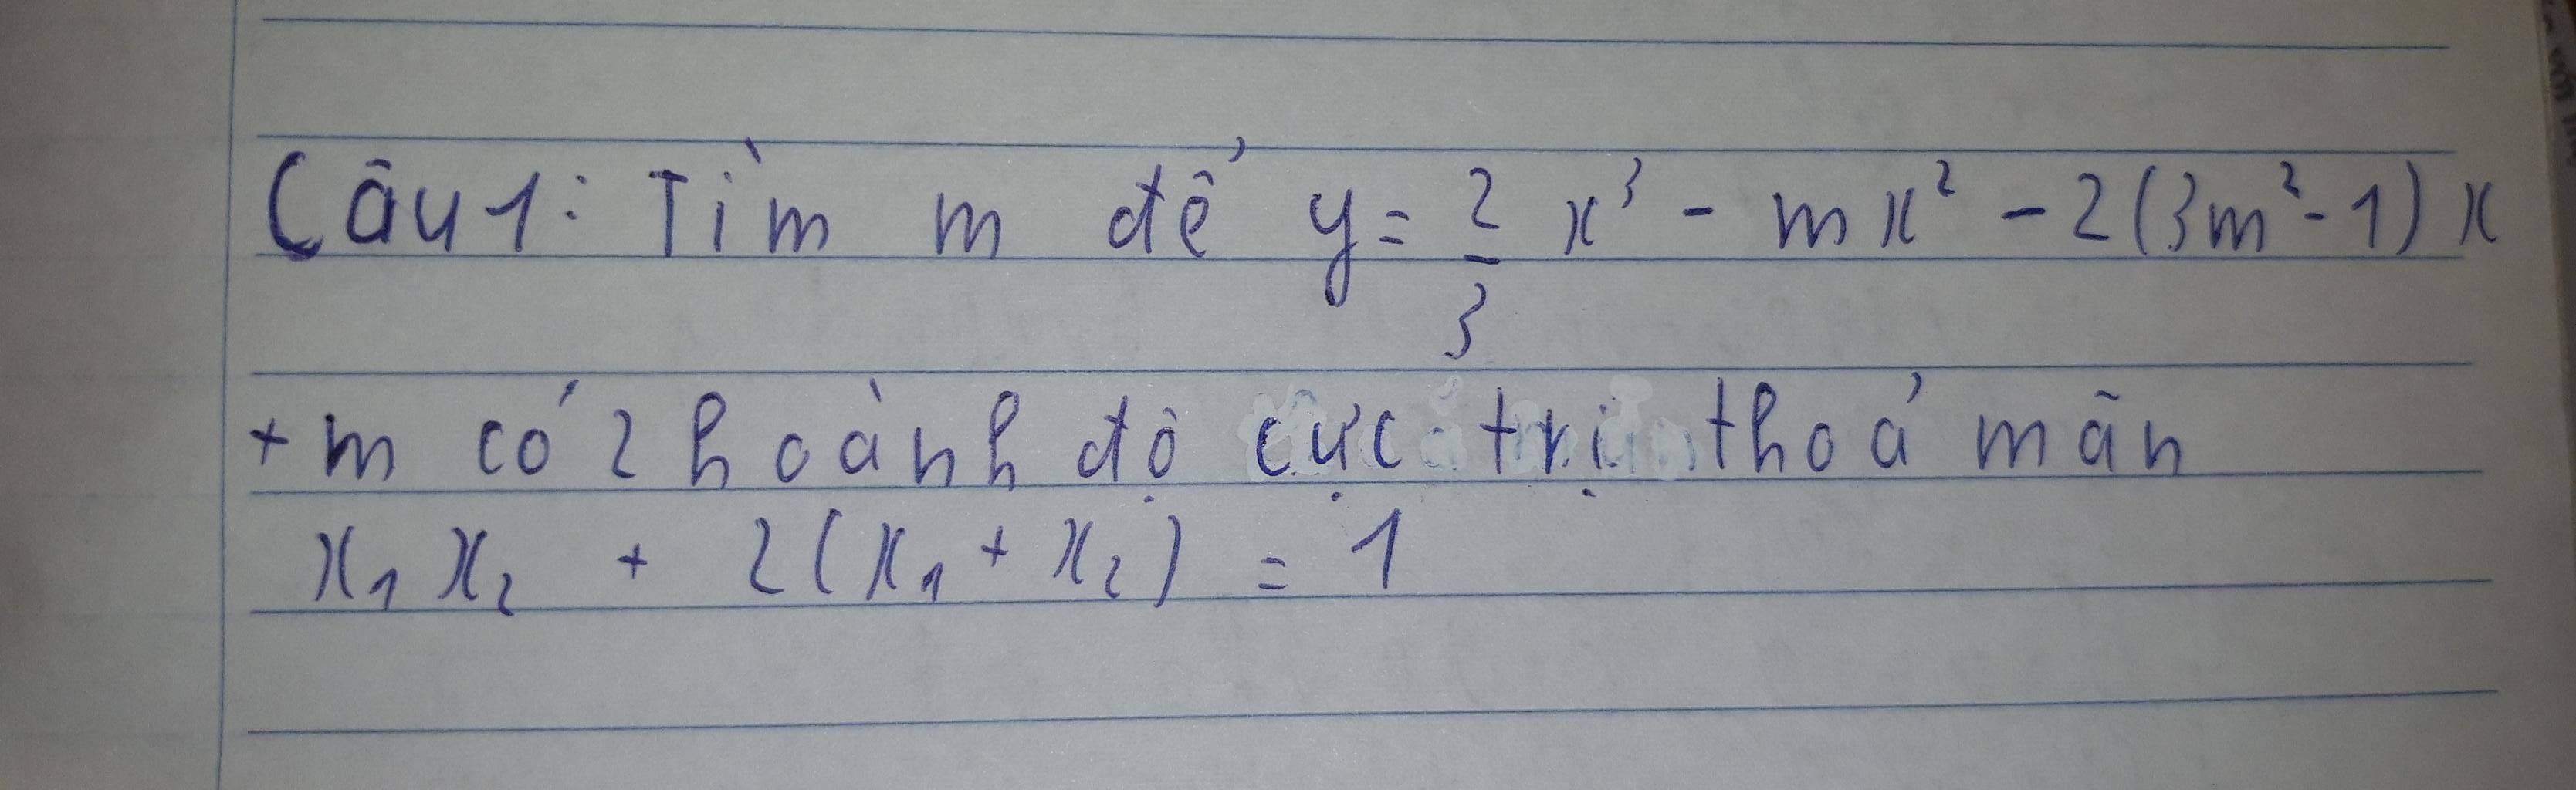 Câu 1: Tìm m để y = 2/3 x³ - mx² - 2(3m² - 1)x
+ m có 2 hoành độ cực trị thoả mãn
x₁x₂ + 2(x₁ + x₂) = 1